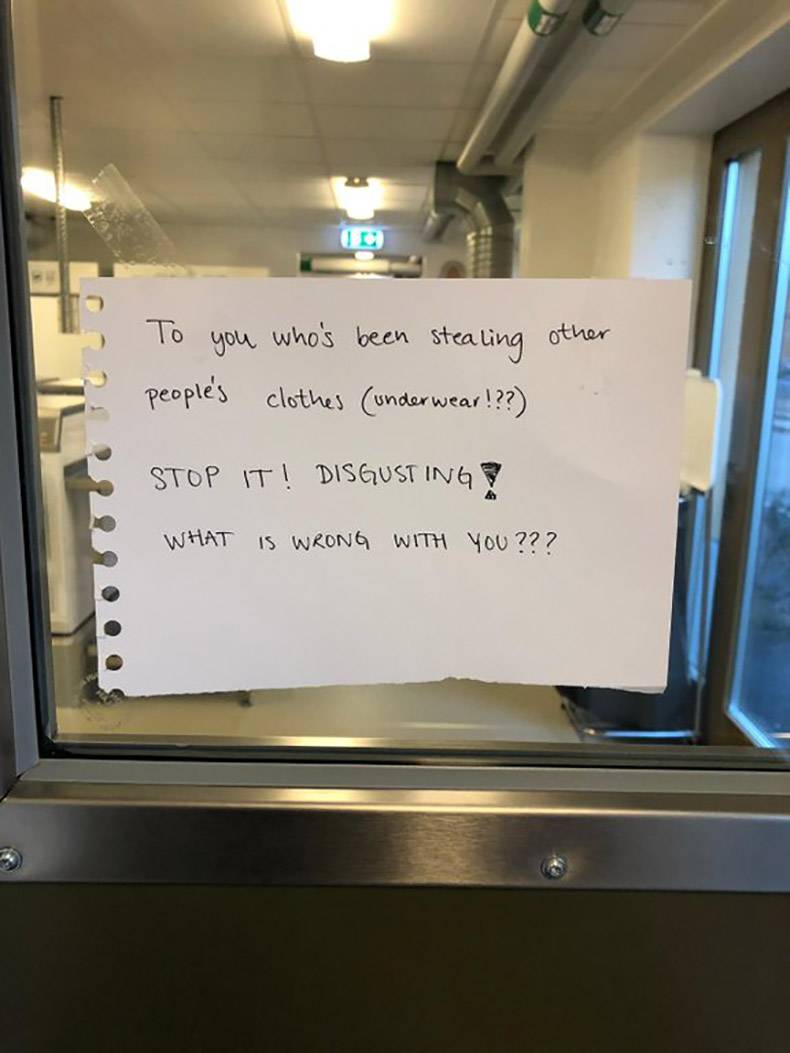 To you who's been stealing other
people's clothes (underwear!??)
STOP IT! DISGUSTING!
WHAT IS WRONG WITH YOU???